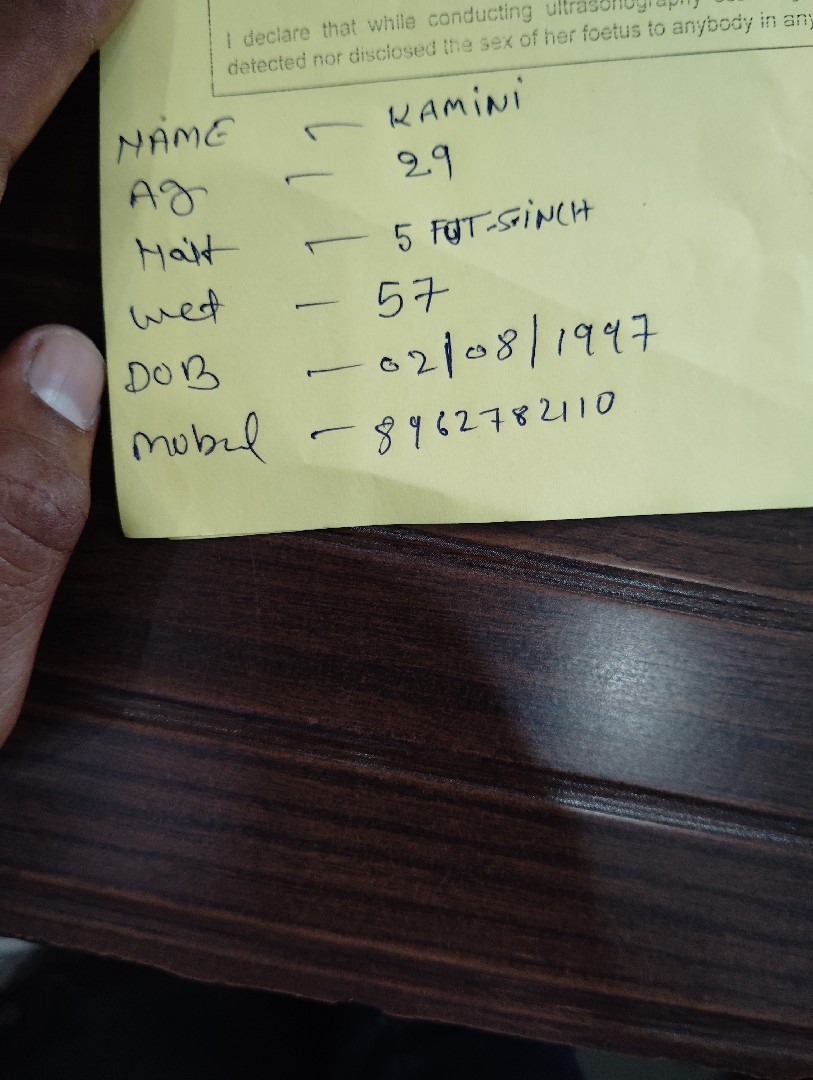 I declare that while conducting ultrasonography
detected nor disclosed the sex of her foetus to anybody in any
NAME - KAMINI
Ag - 29
Hait - 5 FUT-5INCH
wet - 57
DOB - 02/08/1997
mobel - 8962782110